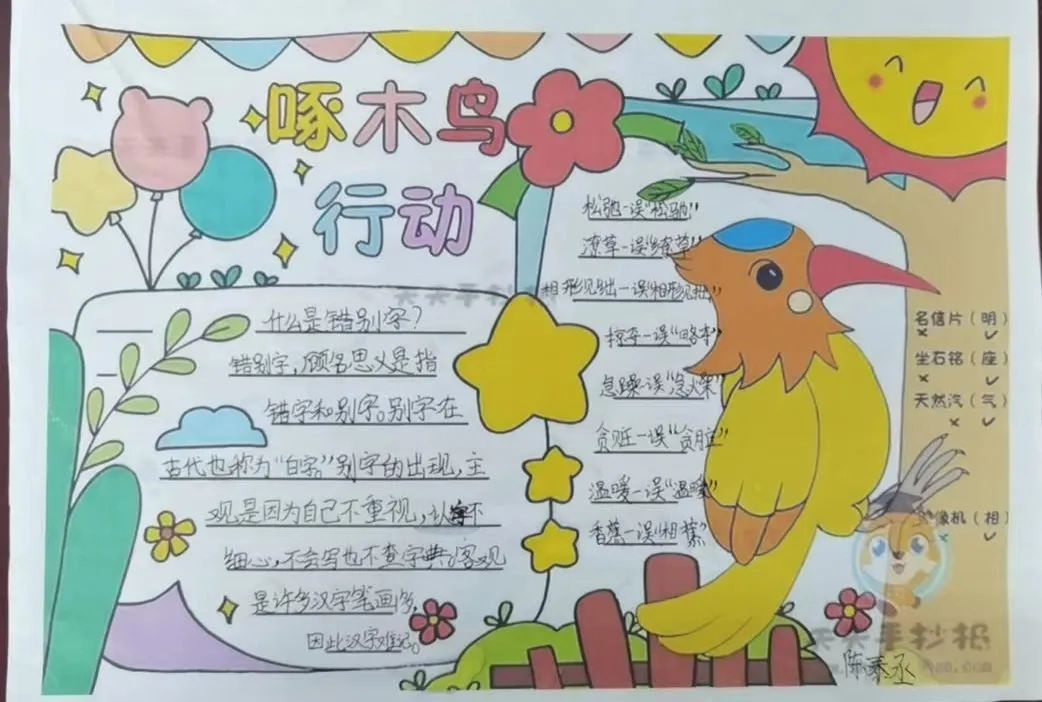 啄木鸟
行动
什么是错别字?
错别字,顾名思义是指
错字和别字。别字在
古代也称为“白字。”别字的出现,主
观是因为自己不重视,认不
细心,不会写也不查字典。客观
是许多汉字笔画多,
因此汉字难记。
松驰—误“松驰”
潦草—误“缭草”
相形见绌—误“相形见拙”
掠夺—误“略夺”
急躁—误“急燥”
贪赃—误“贪脏”
温暖—误“温暖”
香蕉—误“相蕉”
名信片(明)
× ✓
坐右铭(座)
× ✓
天然汽(气)
× ✓
像机(相)
× ✓
天天手抄报
天天手抄报
陈